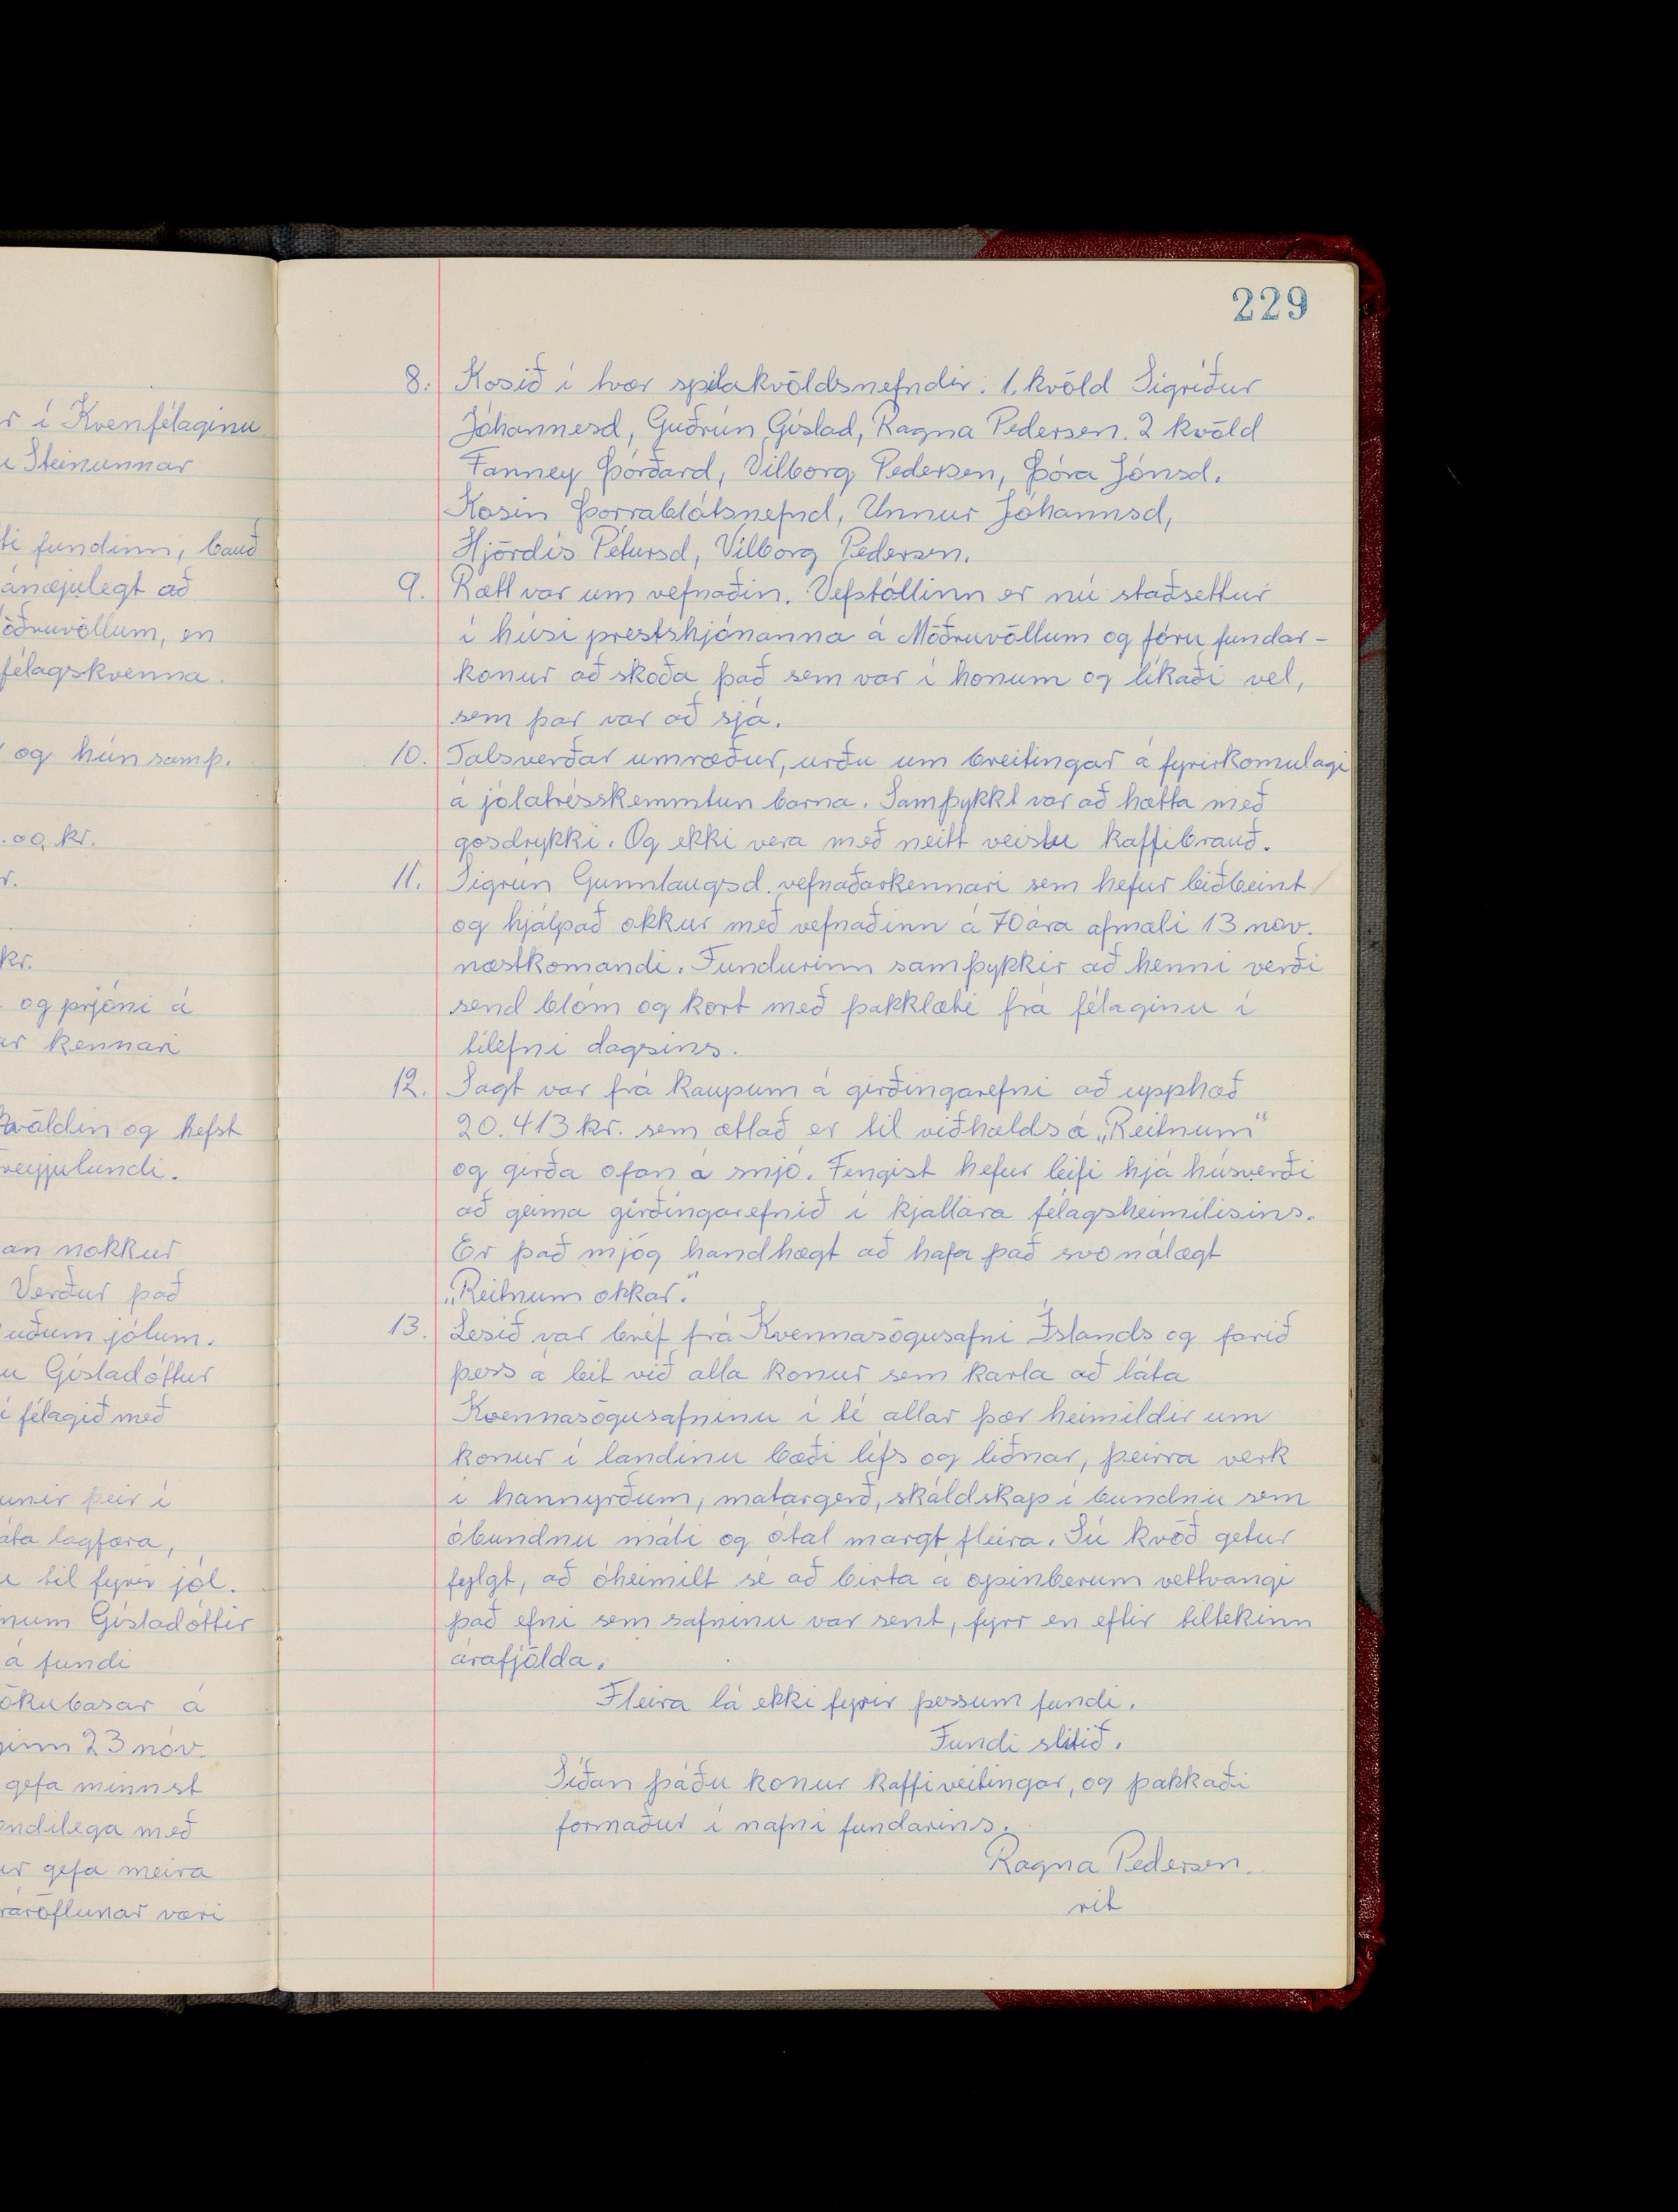 r í Kvenfélaginu
Steinunnar
ti fundinn, bauð
ánægjulegt að
öðruvöllum, en
félagskvenna.
og hún samþ.
.00 kr.
r.
kr.
og prjóni á
ar kennari
kvöldin og hefst
Freyjulundi.
an nokkur
Verður það
uðum jólum.
u Gísladóttur
í félagið með
unir þeir í
áta lagfæra,
til fyrir jól.
num Gísladóttir
á fundi
ökubasar á
ginn 23 nóv.
gefa minnst
endilega með
ur gefa meira
áröflunar væri
229
8. Kosið í tvær spilakvöldsnefndir. 1. kvöld Sigríður
Jóhannesd, Guðrún Gíslad, Ragna Pedersen. 2 kvöld
Fanney Þórðard, Vilborg Pedersen, Þóra Jónsd.
Kosin Þorrablótsnefnd, Unnur Jóhannsd,
Hjördís Pétursd, Vilborg Pedersen.
9. Rætt var um vefnaðin. Vefstóllinn er nú staðsettur
í húsi prestshjónanna á Möðruvöllum og fóru fundar-
konur að skoða það sem var í honum og líkaði vel,
sem þar var að sjá.
10. Talsverðar umræður, urðu um breitingar á fyrirkomulagi
á jólatrésskemmtun barna. Samþykkt var að hætta með
gosdrykki. Og ekki vera með neitt veislu kaffibrauð.
11. Sigrún Gunnlaugsd. vefnaðarkennari sem hefur leiðbeint
og hjálpað okkur með vefnaðinn á 70 ára afmæli 13 nóv.
næstkomandi. Fundurinn samþykkir að henni verði
send blóm og kort með þakklæti frá félaginu í
tilefni dagsins.
12. Sagt var frá kaupum á girðingarefni að upphæð
20.413 kr. sem ætlað er til viðhalds á „Reitnum“
og girða ofan á snjó. Fengist hefur leifi hjá húsverði
að geima girðingarefnið í kjallara félagsheimilisins.
Er það mjög handhægt að hafa það svo nálægt
„Reitnum okkar.“
13. Lesið var bréf frá Kvennasögusafni Íslands og farið
þess á leit við alla konur sem karla að láta
Kvennasögusafninu í té allar þær heimildir um
konur í landinu bæði lífs og liðnar, þeirra verk
í hannyrðum, matargerð, skáldskap í bundnu sem
óbundnu máli og ótal margt fleira. Sú kvöð getur
fylgt, að óheimilt sé að birta á opinberum vettvangi
það efni sem safninu var sent, fyrr en eftir tiltekinn
árafjölda.
Fleira lá ekki fyrir þessum fundi.
Fundi slitið.
Síðan þáðu konur kaffiveitingar, og þakkaði
formaður í nafni fundarins.
Ragna Pedersen.
rit